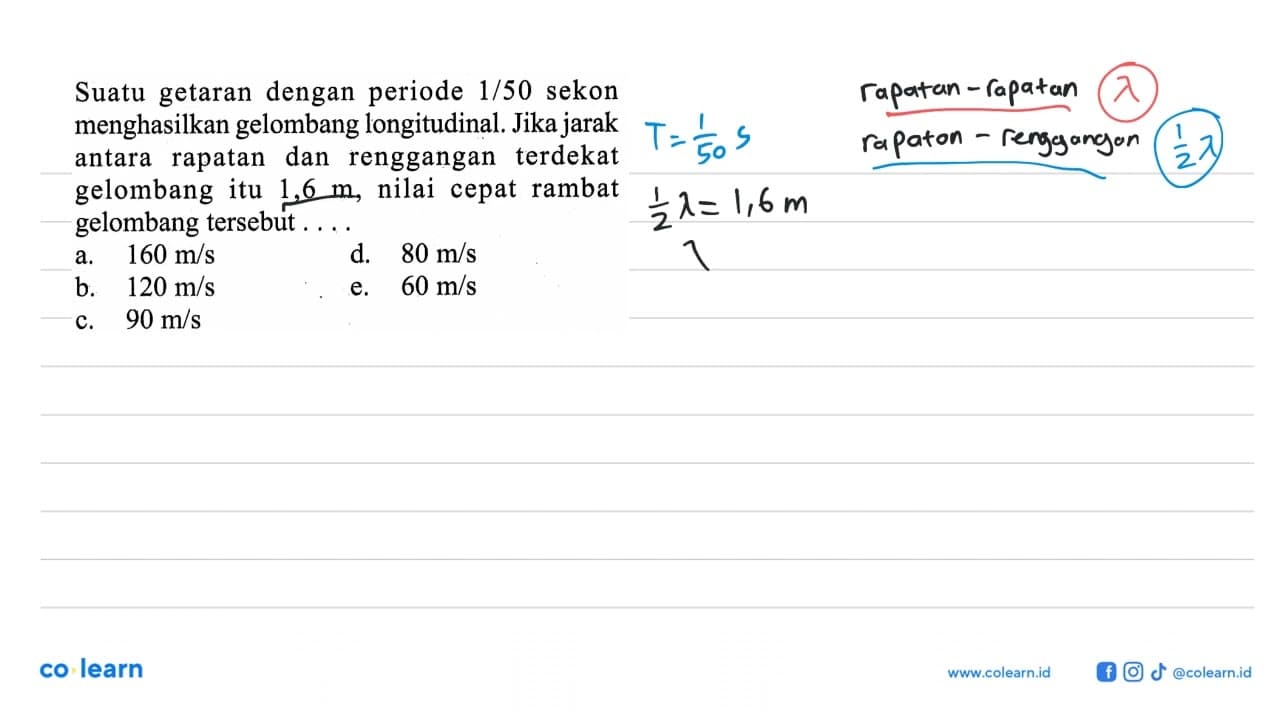 Suatu getaran dengan periode 1/50 sekon
menghasilkan gelombang longitudinal. Jika jarak
antara rapatan dan renggangan terdekat
gelombang itu 1,6 m, nilai cepat rambat
gelombang tersebut . . . .
a. 160 m/s d. 80 m/s
b. 120 m/s e. 60 m/s
c. 90 m/s
T = 1/50 s
1/2 λ = 1,6 m
λ
rapatan - rapatan λ
rapatan - renggangan 1/2 λ
co learn
www.colearn.id @colearn.id